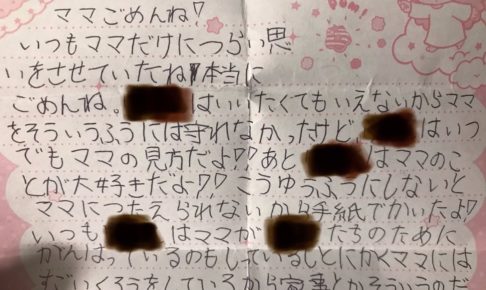 ママごめんね♡
いつもママだけにつらい思
いをさせていたね本当に
ごめんね。はいいたくてもいえないからママ
をそういうふうには守れなかったけどはいつ
でもママの見方だよ♡♡あとはママのこ
とが大好きだよ♡♡こうゆうふうにしないと
ママにつたえられないから手紙でかいたよ♡
いつもはママがたちのために
がんばっているのもしているしとにかくママには
すごいくろうをしているから家事とかそういうのだ